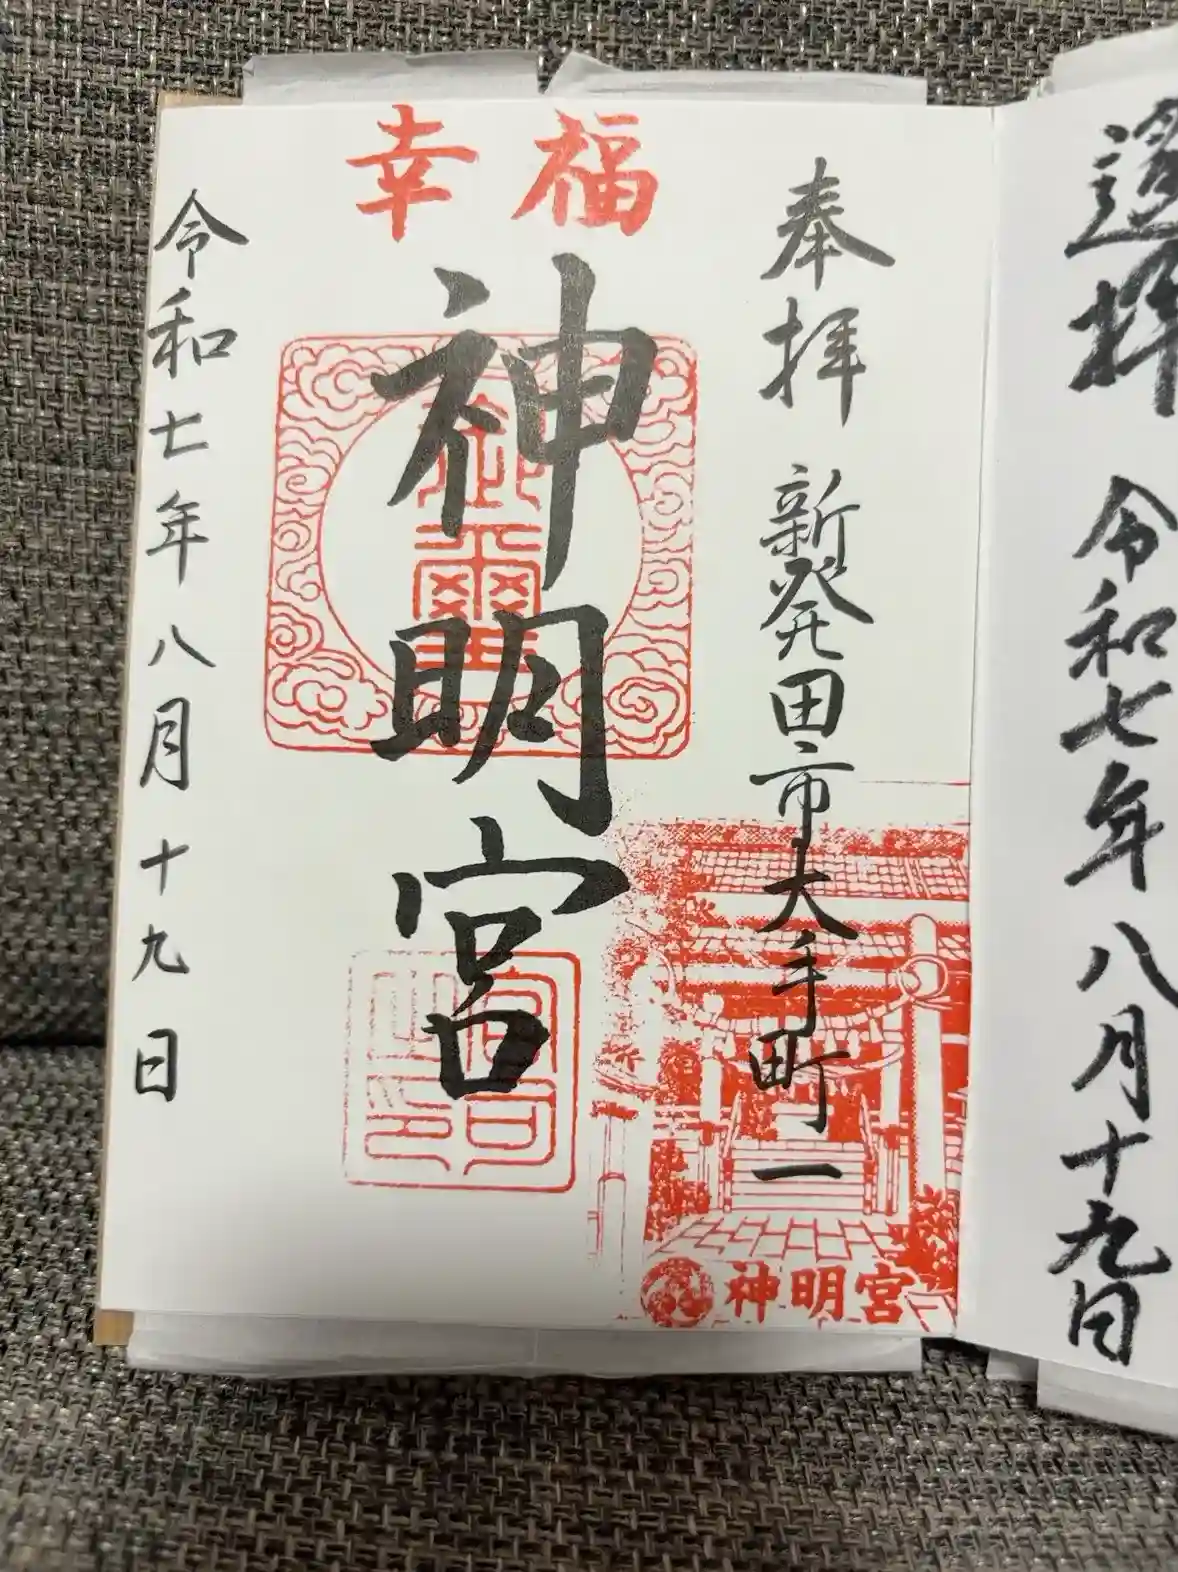 遥拝
令和七年八月十九日
奉拝
新発田市大手町一
福幸
神明宮
御璽
神明宮
令和七年八月十九日